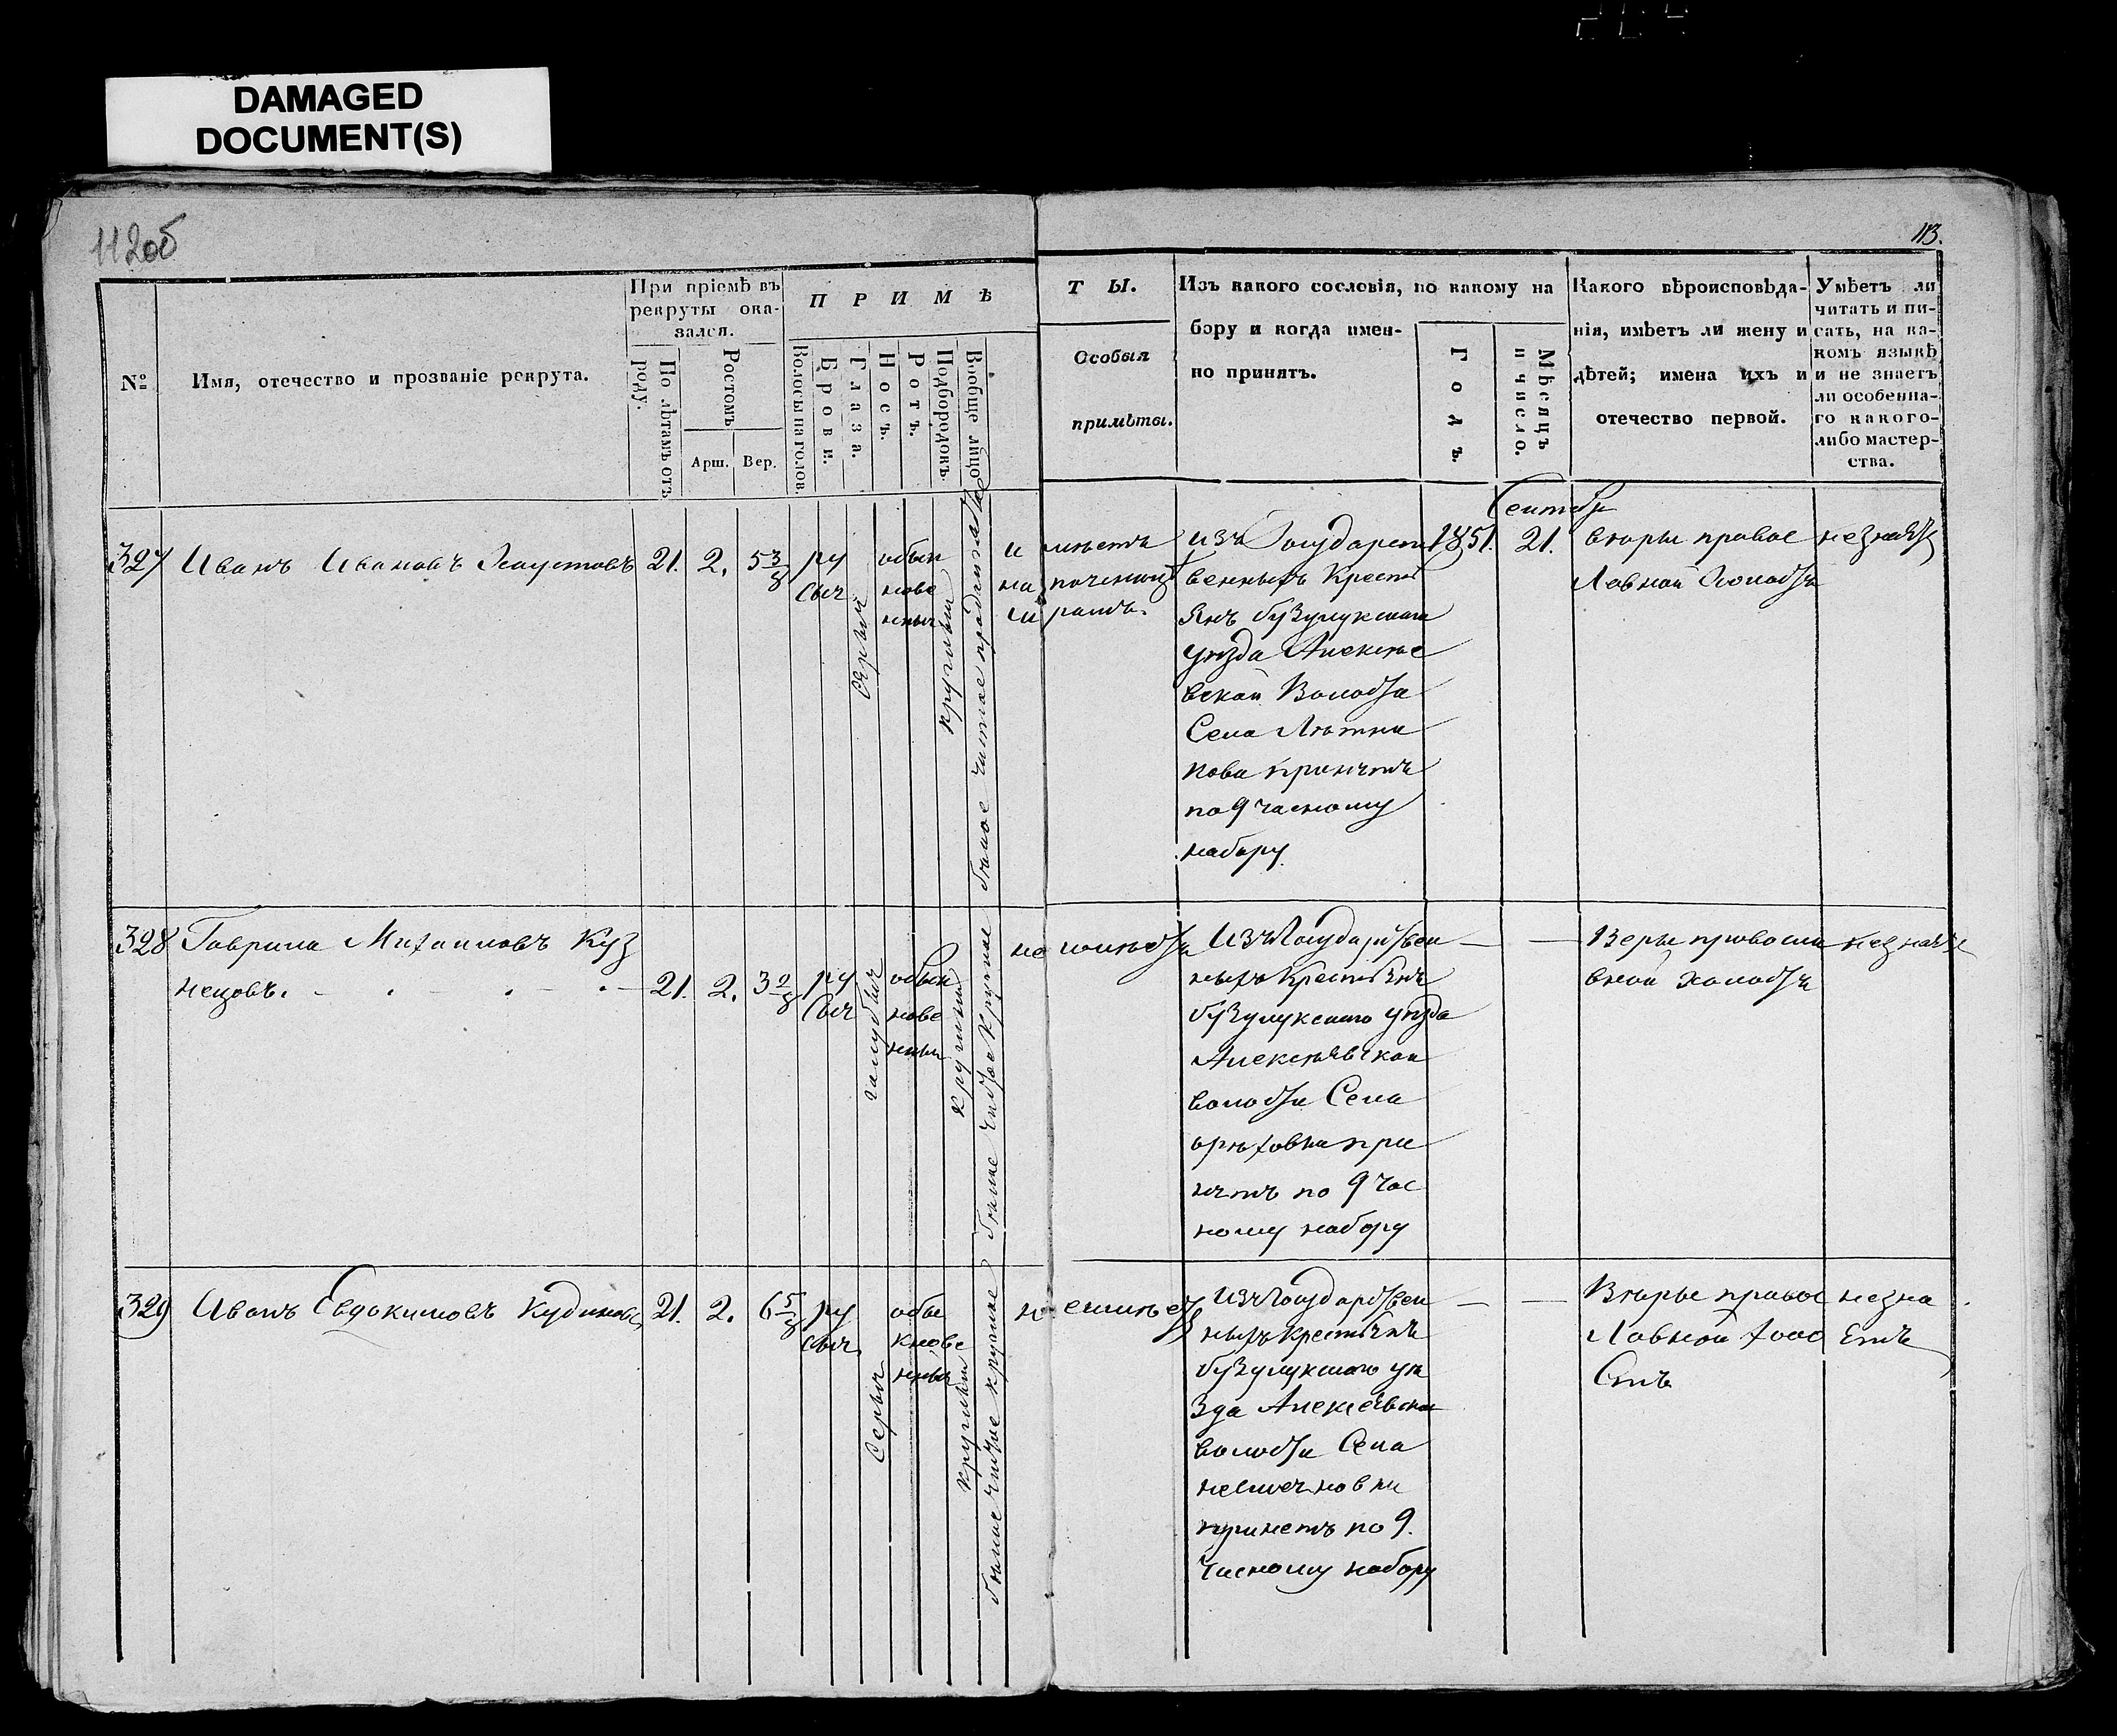 DAMAGED
DOCUMENT(S)
112об
113.
№
Имя, отечество и прозваніе рекрута.
При пріемѣ въ
рекруты ока-
зался.
По лѣтамъ отъ
роду.
Ростомъ
Арш.
Вер.
П Р И М Ѣ
Волосы на голов.
Брови.
Глаза.
Носъ.
Ротъ.
Подбородокъ.
Вообще лицо
Т Ы.
Особыя
примѣты.
Изъ какого сословія, по какому на
бору и когда имен-
но принятъ.
Годъ.
Мѣсяцъ
и число.
Какого вѣроисповѣда-
нія, имѣетъ ли жену и
дѣтей; имена ихъ и
отечество первой.
Умѣетъ ли
читать и пи-
сать, на ка-
комъ языкѣ
и не знаетъ
ли особенна-
го какого-
либо мастер-
ства.
327 Иванъ Ивановъ Хаустовъ 21. 2. 5 3/8
ру
сыч
серыи
обын
нове
нныи
круглыи
белое чистое
и мѣетъ
на
изъ Государст
венныхъ Кресть
янъ бузулукскаго
уѣзда Алексѣе
вской Волости
Села Лѣтни
кова принятъ
по 9 часному
набору.
1851.
Сентяб
21.
вѣры право
славной Холостъ
незнаетъ
328 Гаврила Михаиловъ Куз
нецовъ. 21. 2. 3 2/8
ру
сыч
голубыч
обын
нове
нныи
круглыи
белое чистое круглое
не имѣетъ
Изъ Государствен
ныхъ Крестьянъ
бузулукскаго уѣзда
Алексѣевской
волости Села
орѣховки при
нятъ по 9 час
ному набору
Веры правосла
вной холостъ
незнаетъ
329 Иванъ Евдокимовъ Кудиновъ 21. 2. 6 5/8
ру
сыч
серыч
обы
кнове
нныи
круглыи
белое чистое круглое
не имѣетъ
Изъ Государствен
ныхъ крестьянъ
бузулукскаго уѣ
зда Алексѣевской
волости Села
принетъ по 9.
часному набору
Вѣры право
славной холо
стъ
незна
етъ